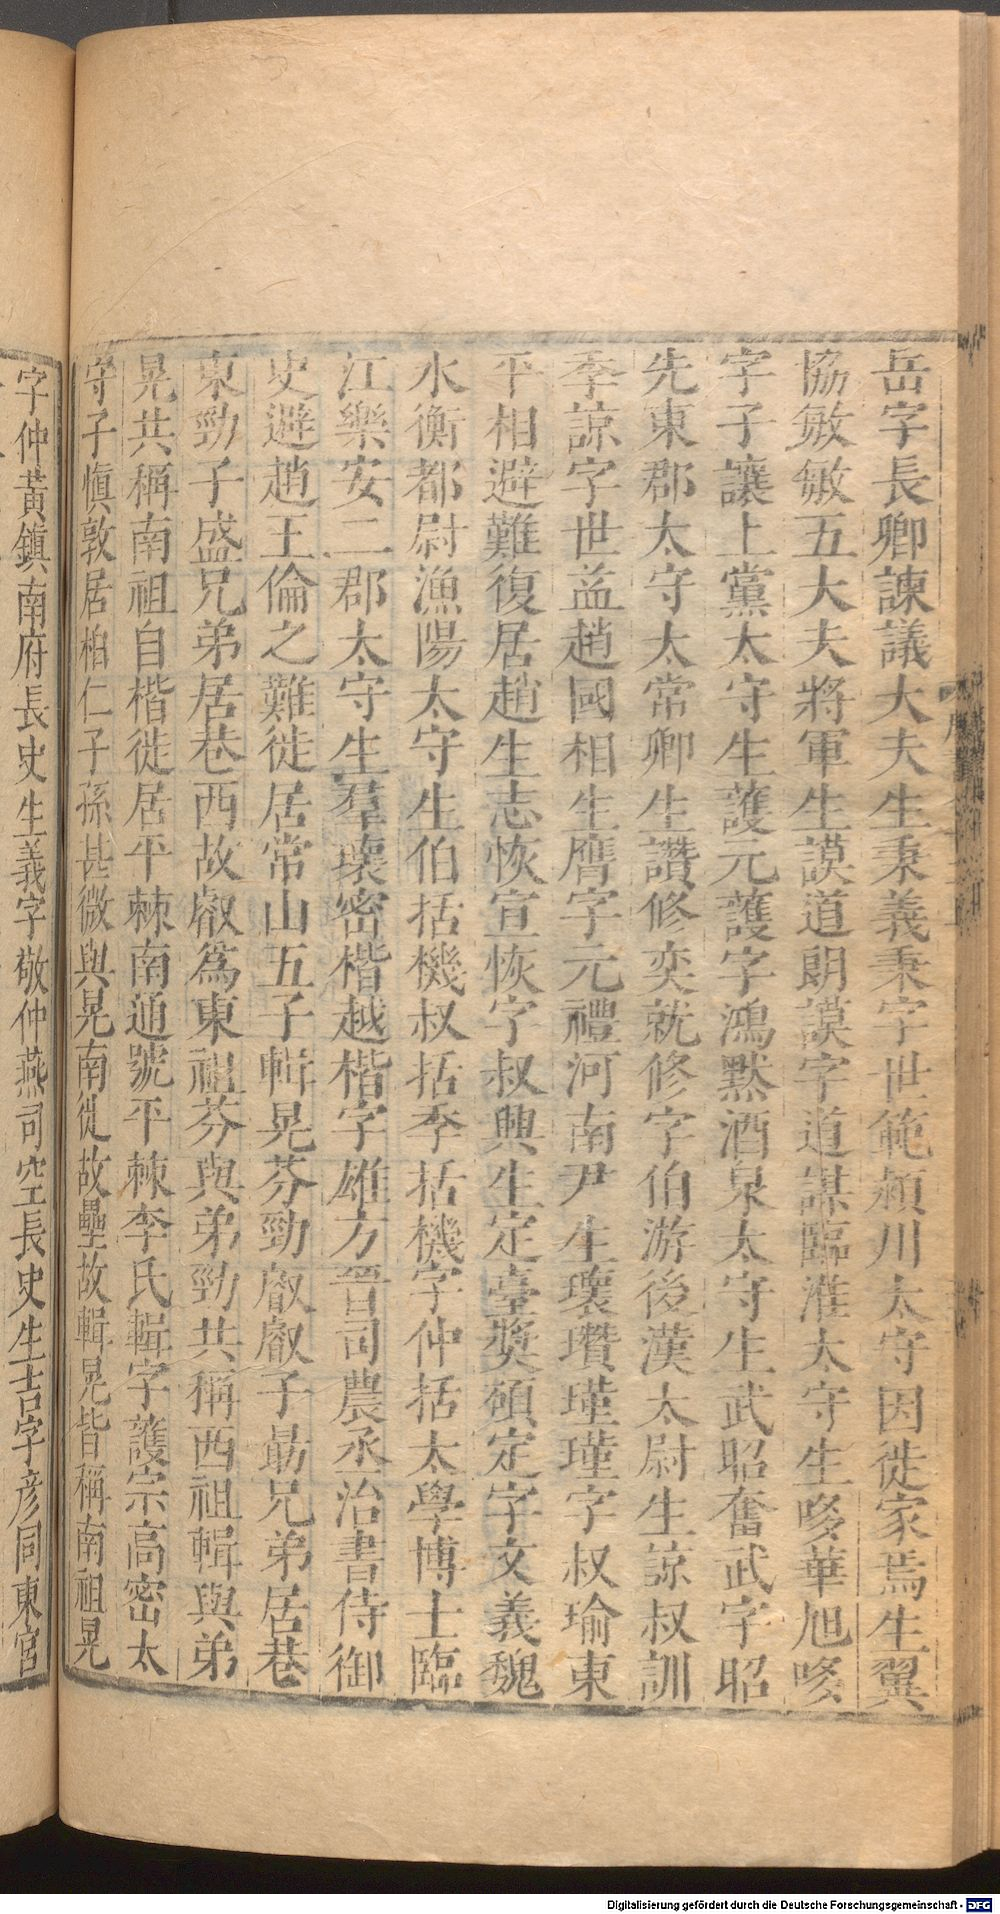 岳字長卿諫議大夫生秉義秉字世範潁川太守因徙家焉生翼
協敏敏五大夫將軍生謨道朗謨字道謀臨淮太守生哆華旭哆
字子讓上黨太守生護元護字鴻默酒泉太守生武昭奮武字昭
先東郡太守太常卿生讚修奕就修字伯游後漢太尉生諒叔訓
季諒字世益趙國相生膺字元禮河南尹生瓌瓚瑾瑾字叔瑜東
平相避難復居趙生志恢宣恢字叔興生定臺奬碩定字文義魏
水衡都尉漁陽太守生伯括機叔括季括機字仲括太學博士臨
江樂安二郡太守生羣瓌密楷越楷字雄方晉司農丞治書侍御
史避趙王倫之難徙居常山五子輯晃芬勁叡叡子勗兄弟居巷
東勁子盛兄弟居巷西故叡爲東祖芬與弟勁共稱西祖輯與弟
晃共稱南祖自楷徙居平棘南通號平棘李氏輯字護宗高密太
守子愼敦居柏仁子孫甚微與晃南徙故壘故輯晃皆稱南祖晃
字仲黃鎮南府長史生義字敬仲燕司空長史生吉字彥同東宮
Digitalisierung gefördert durch die Deutsche Forschungsgemeinschaft - DFG